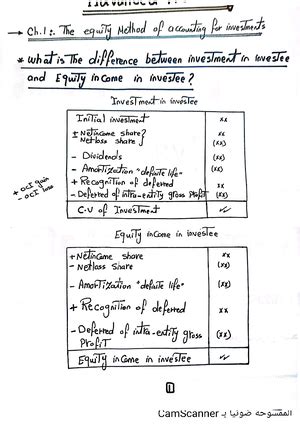 → Ch.1:. The equity Method of accounting for investments
* what is the difference between investment in investee
and Equity income in investee?
Investment in investee
Initial investment xx
± Netincome share xx
Netloss share (xx)
- Dividends (xx)
- Amortization "definite life" (xx)
+ Recognition of deferred xx
- Deferred of intra-entity gross Profit (xx)
+ OCI gain
- OCI loss
C.V of Investment
Equity income in investee
+ Netincome share xx
- Netloss share (xx)
- Amortization "definite life" (xx)
+ Recognition of deferred xx
- Deferred of intra-entity gross (xx)
Profit
Equity income in investee
1
الممسوحة ضوئيا بـ CamScanner